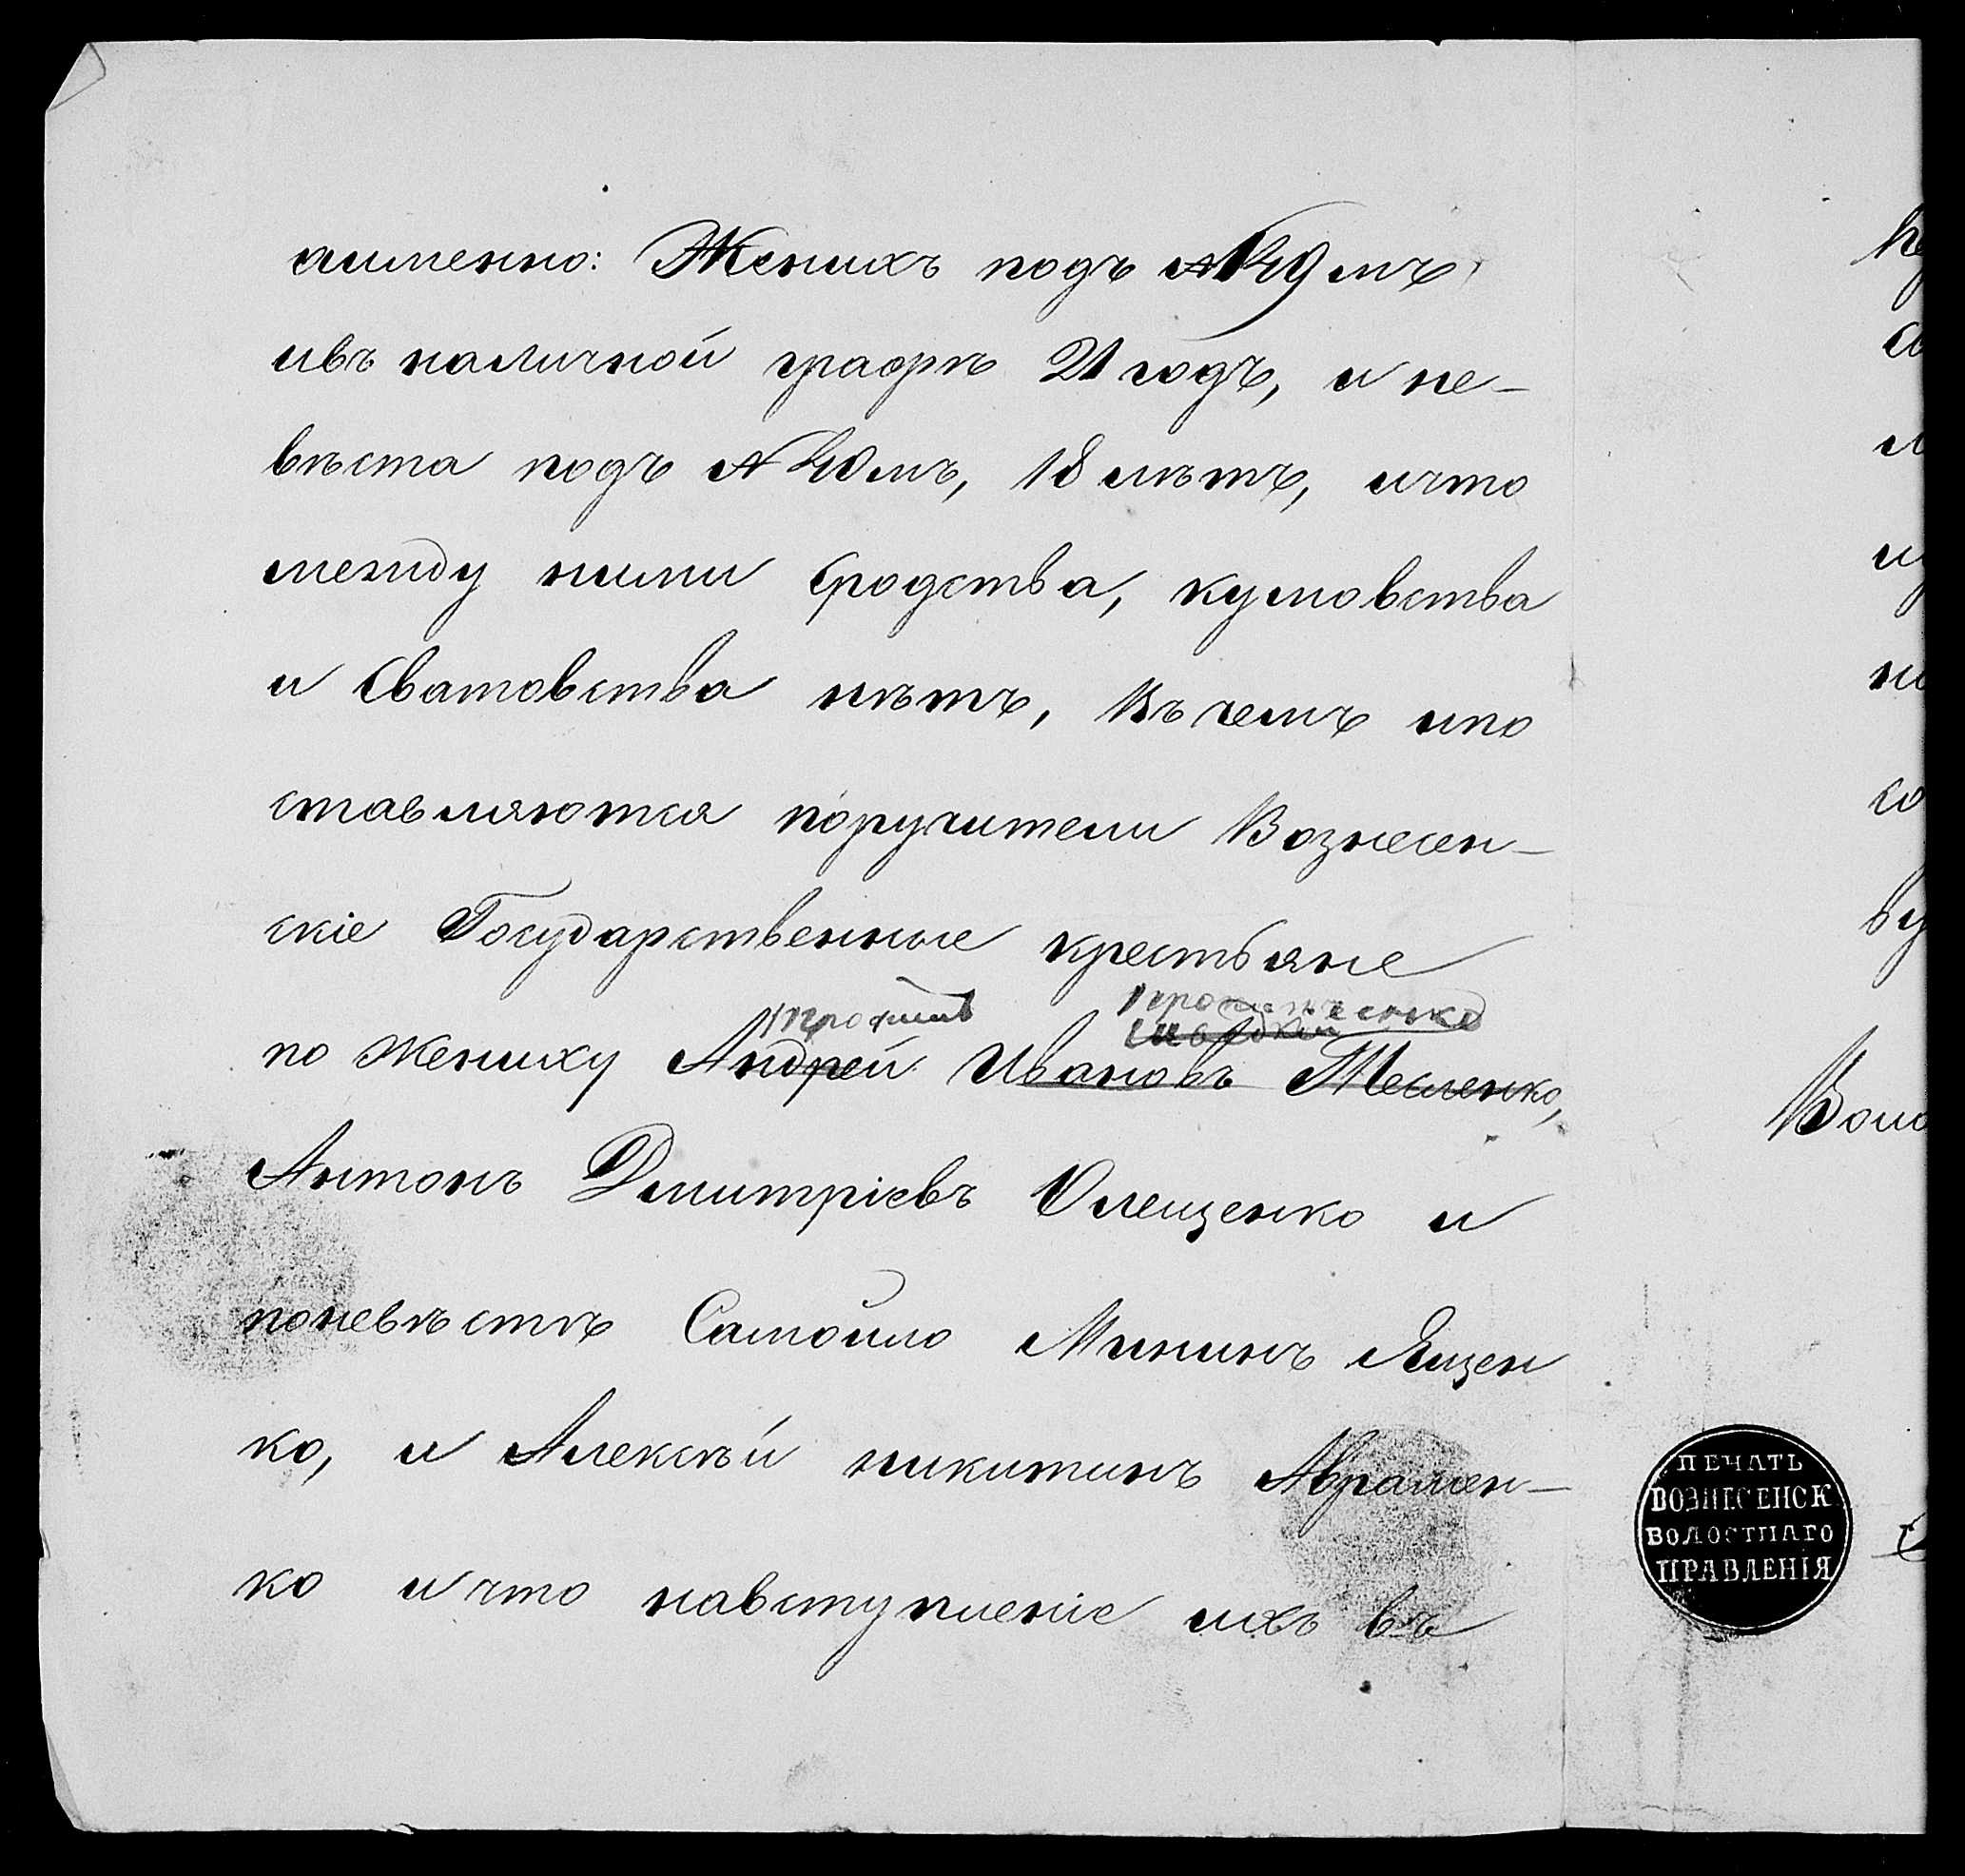 аименно: Женихъ подъ №49мъ
ивъ наличной графѣ 21 годъ, и не-
вѣста подъ №40мъ, 18 лѣтъ, ичто
между ними сродства, кумовства
и Сватовства нѣтъ, Въ чемъ ипо
ставляются поручители Вознесен-
скіе Государственные крестьяне
по Жениху Андрей Ивановъ Тесленко,
Антонъ Дмитріевъ Олещенко и
поневѣстѣ Самойло Мининъ Ящен
ко, и Алексѣй никитинъ Аврамен-
ко ичто навступленіе ихъ въ
ПЕЧАТЬ
ВОЗНЕСЕНСК
ВОЛОСТНАГО
ПРАВЛЕНІЯ